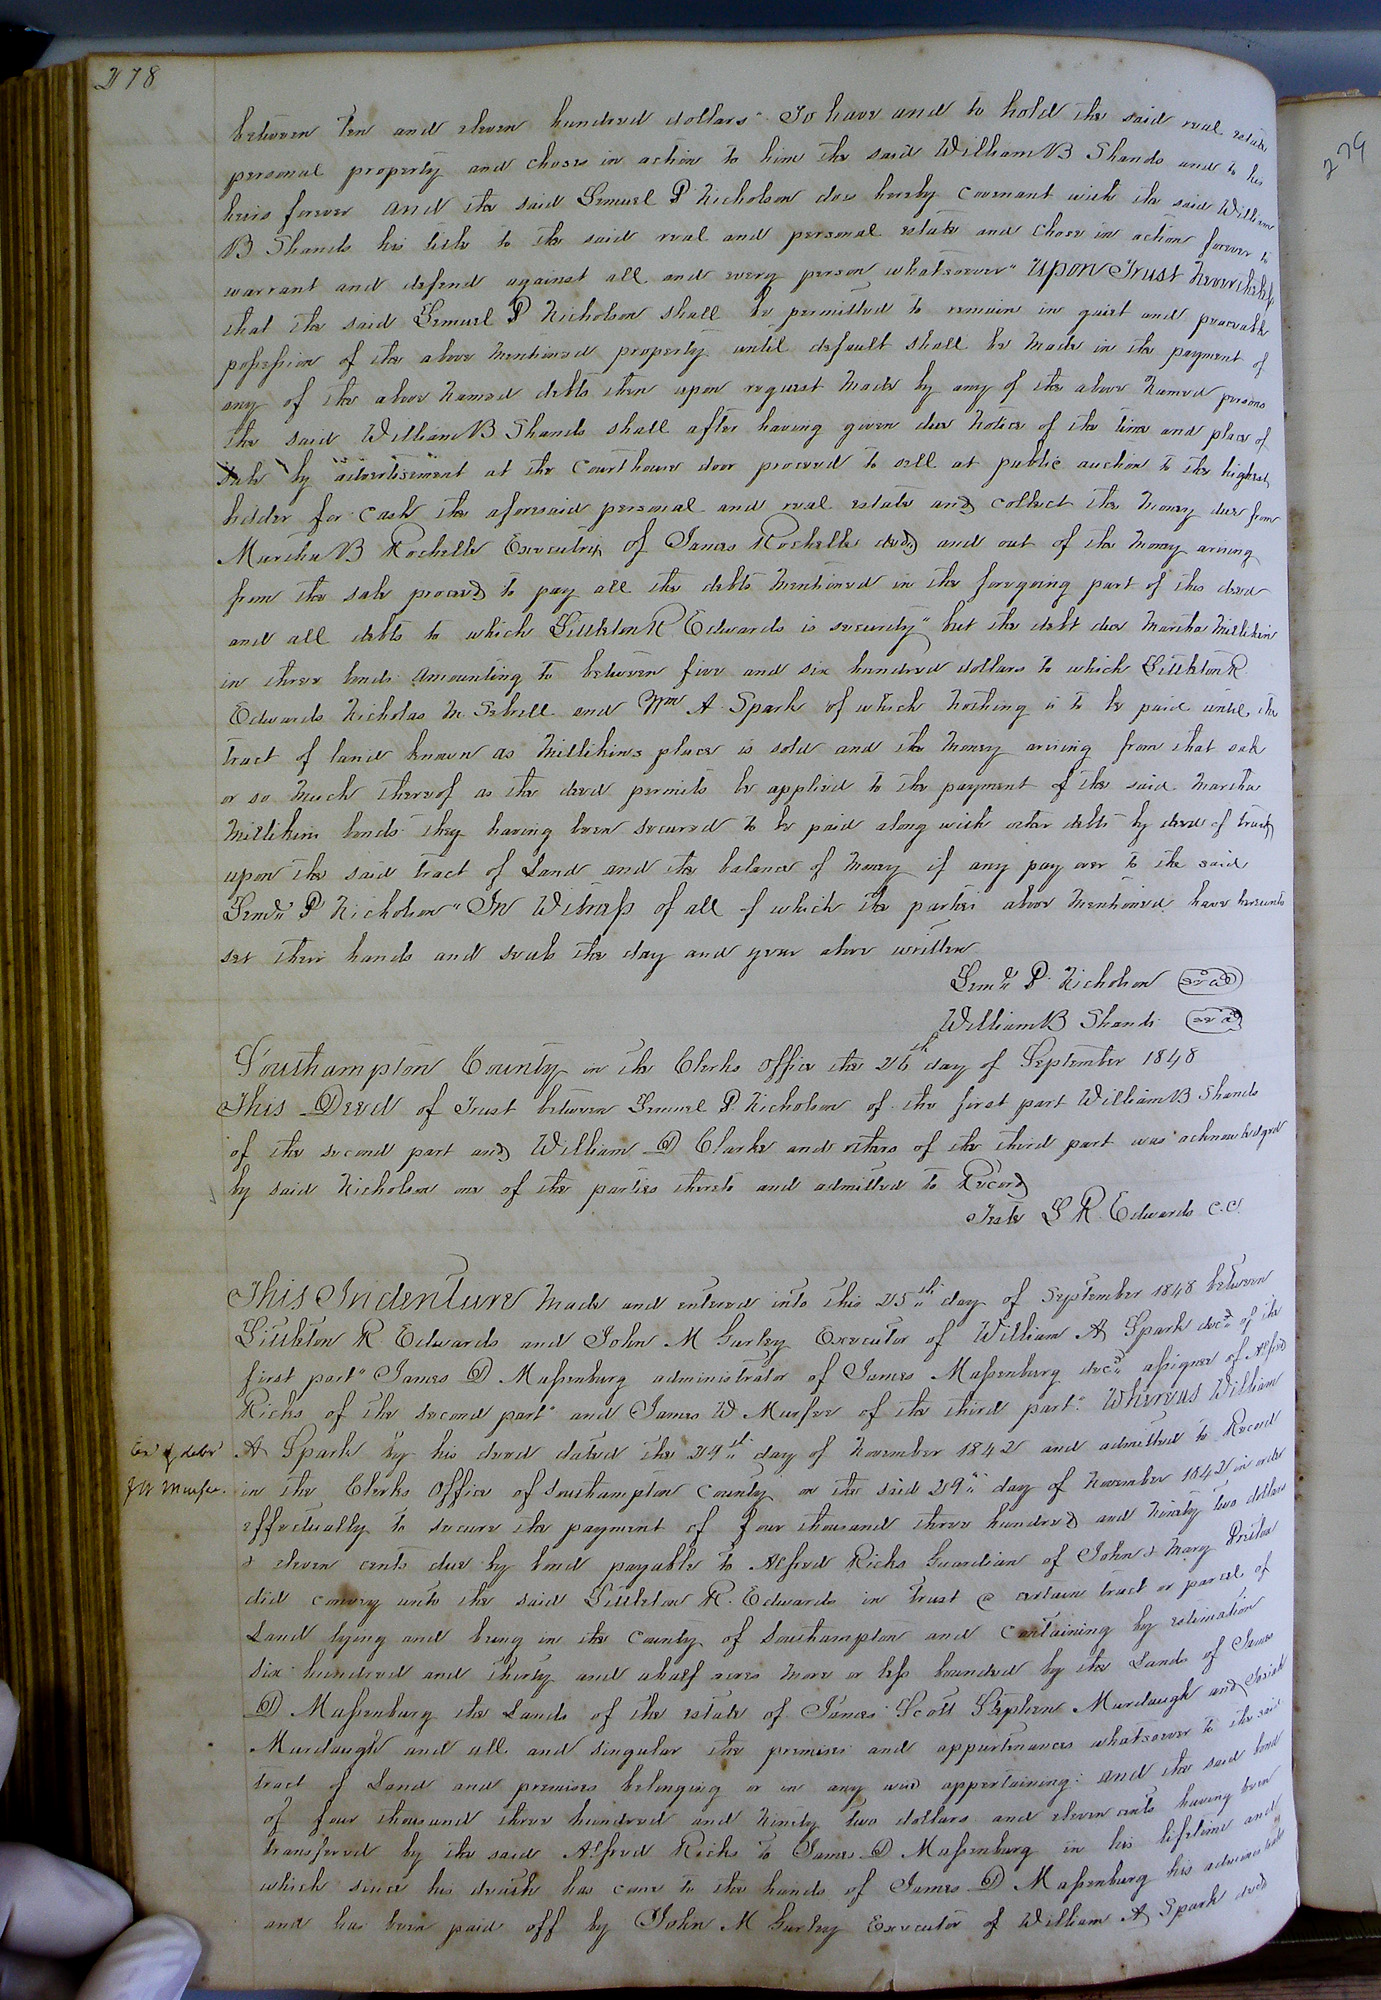 278
279
between ten and eleven hundred dollars" To have and to hold the said real estate
personal property and choses in action to him the said William B Shands and to his
heirs forever and the said Lemuel P Nicholson does hereby covenant with the said William
B Shands his title to the said real and personal estate and chose in action forever to
warrant and defend against all and every person whatsoever" Upon Trust Nevertheless
that the said Lemuel P Nicholson shall be permitted to remain in quiet and peaceable
possession of the above mentioned property until default shall be made in the payment of
any of the above named debts then upon request made by any of the above named persons
the said William B Shands shall after having given due notice of the time and place of
sale by advertisement at the Courthouse door proceed to sell at public auction to the highest
bidder for cash the aforesaid personal and real estate and collect the money due from
Martha B Rochelle Executrix of James Rochelle decd and out of the money arising
from the sale proceed to pay all the debts mentioned in the foregoing part of this deed
and all debts to which Littleton R Edwards is security" but the debt due Martha Millikin
in three bonds amounting to between five and six hundred dollars to which Littleton R
Edwards Nicholas M Sebrell and Wm A Spark of which nothing is to be paid until the
tract of land known as Millikins place is sold and the money arising from that sale
or so much thereof as the deed permits be applied to the payment of the said Martha
Millikins bonds they having been secured to be paid along with other debts by deed of trust
upon the said tract of Land and the balance of money if any pay over to the said
Leml P Nicholson" In Witness of all of which the parties above mentioned have hereunto
set their hands and seals the day and year above written
Leml P Nicholson seal
William B Shands seal
Southampton County in the Clerks Office the 26th day of September 1848
This Deed of Trust between Lemuel P Nicholson of the first part William B Shands
of the second part and William D Clarke and others of the third part was acknowledged
by said Nicholson one of the parties thereto and admitted to Record
Teste L R Edwards C.C.
This Indenture made and entered into this 25th day of September 1848 between
Littleton R Edwards and John M Gurley Executor of William A Spark decd of the
first part" James D Massenburg administrator of James Massenburg decd assignee of Alfred
Ricks of the second part" and James W Murfee of the third part: Whereas William
A Spark by his deed dated the 29th day of November 1842 and admitted to Record
Exd & deld
J W Murfee.
in the Clerks Office of Southampton County on the said 29th day of November 1842 in order
effectually to secure the payment of four thousand three hundred and ninety two dollars
& eleven cents due by bond payable to Alfred Ricks Guardian of John & Mary Pretlow
did convey unto the said Littleton R. Edwards in trust a certain tract or parcel of
Land lying and being in the County of Southampton and containing by estimation
six hundred and thirty and a half acres more or less bounded by the Lands of James
D Massenburg the Lands of the estate of James Scott Stephen Murdaugh and Josiah
Murdaugh and all and singular the premises and appurtenances whatsoever to the said
tract of Land and premises belonging or in any wise appertaining: and the said bond
of four thousand three hundred and ninety two dollars and eleven cents having been
transferred by the said Alfred Ricks to James D Massenburg in his lifetime and
which since his death has come to the hands of James D Massenburg his administrator
and has been paid off by John M Gurley Executor of William A Spark decd